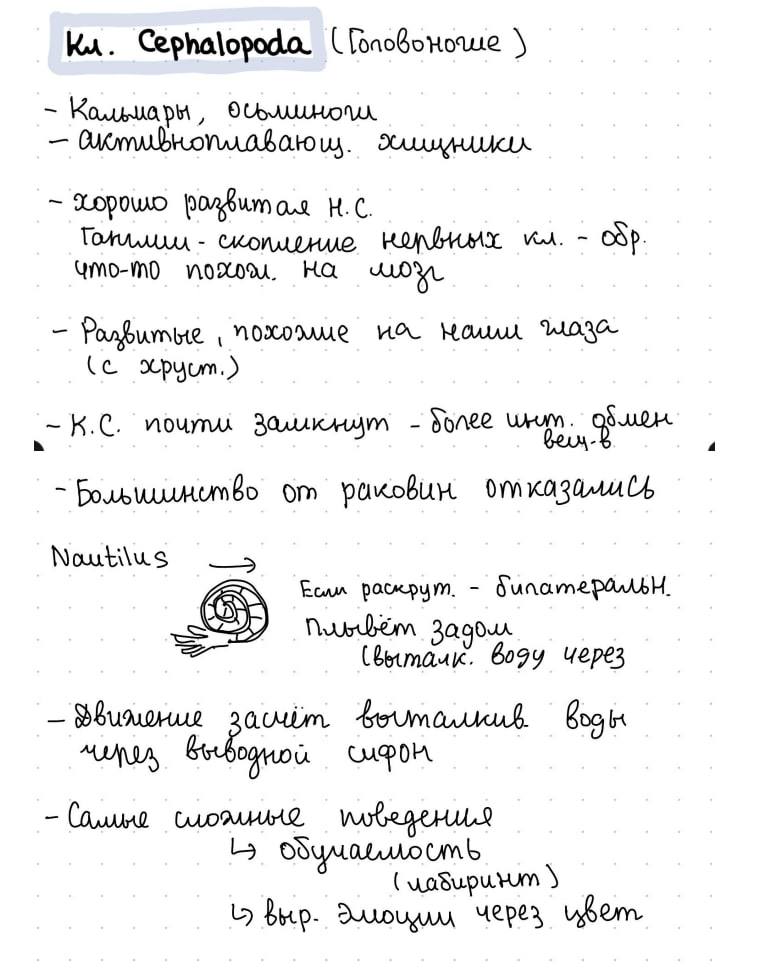 Кл. Cephalopoda (Головоногие)
- Кальмары, осьминоги
- активноплавающ. хищники
- хорошо развитая Н.С.
Ганглии - скопление нервных кл. - обр.
что-то похож. на мозг
- Развитые, похожие на наши глаза
(с хруст.)
- К.С. почти замкнут - более инт. обмен
вещ-в
- Большинство от раковин отказались
Nautilus
Если раскрут. - билатеральн.
Плывёт задом
(выталк. воду через
- Движение засчёт выталкив. воды
через выводной сифон
- Самые сложные поведения
↳ обучаемость
(лабиринт)
↳ выр. эмоции через цвет